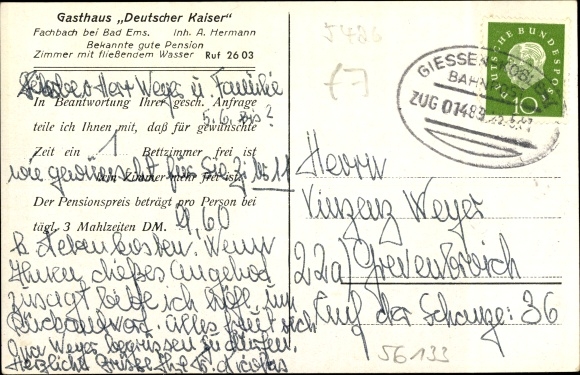 Gasthaus „Deutscher Kaiser"
Fachbach bei Bad Ems. Inh. A. Hermann
Bekannte gute Pension
Zimmer mit fließendem Wasser Ruf 26 03
Herr Weyer u. Familie
In Beantwortung Ihrer gesch. Anfrage
5.6. bis?
teile ich Ihnen mit, daß für gewünschte
Zeit ein 1 Bettzimmer frei ist
wie gewünscht für Sie
kein Zimmer mehr frei ist.
Der Pensionspreis beträgt pro Person bei
tägl. 3 Mahlzeiten DM. 9.60
Nebenkosten. Wenn
Ihnen dieses Angebod
zusagt bitte ich höfl. um
Rückantwort. alles freut sich
Fam Weyer begrüssen zu dürfen.
Herzliche Grüße
Herrn
Vinzenz Weyer
22a) Grevenbroich
Auf der Schanze: 36
5486
56133
GIESSEN
BAHNPOST
ZUG 01489
DEUTSCHE BUNDESPOST
10